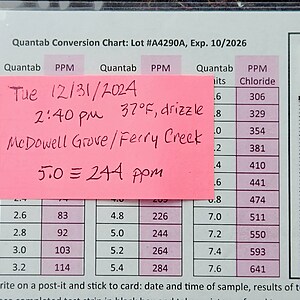 Quantab Conversion Chart: Lot #A4290A, Exp. 10/2026
Quantab PPM Quantab PPM PPM
Chloride
.6 306
.8 329
.0 354
.2 381
.4 410
.6 441
6.8 474
2.6 83 4.8 226 7.0 511
2.8 92 5.0 244 7.2 550
3.0 103 5.2 264 7.4 593
3.2 114 5.4 284 7.6 641
Tue 12/31/2024
2:40 pm 37°F, drizzle
McDowell Grove/Ferry Creek
5.0 ≡ 244 ppm
rite on a post-it and stick to card: date and time of sample, results of t